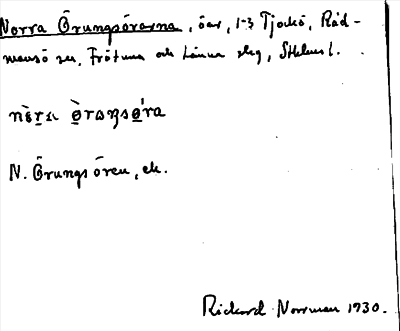 Norra Örungsörarna, öar, 1-3 Tjockö, Råd-
mansö sn, Frötuna och Länna slg, Sthlms l.
nò̀ra ö̀rωŋsö́ra
N. Örungsören, ek.
Rickard Norrman 1930.